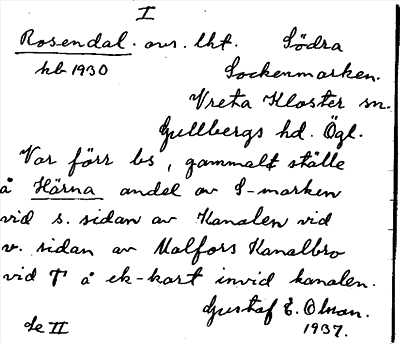 I
Rosendal. avs. lht. Södra
hb 1930 Sockenmarken.
Vreta Kloster sn.
Gullbergs hd. Ögl.
Var förr bs, gammalt ställe
å Härna andel av S-marken
vid s. sidan av Kanalen vid
v. sidan av Malfors Kanalbro
vid T å ek-kart invid kanalen.
Gustaf E. Olson.
de II 1937.